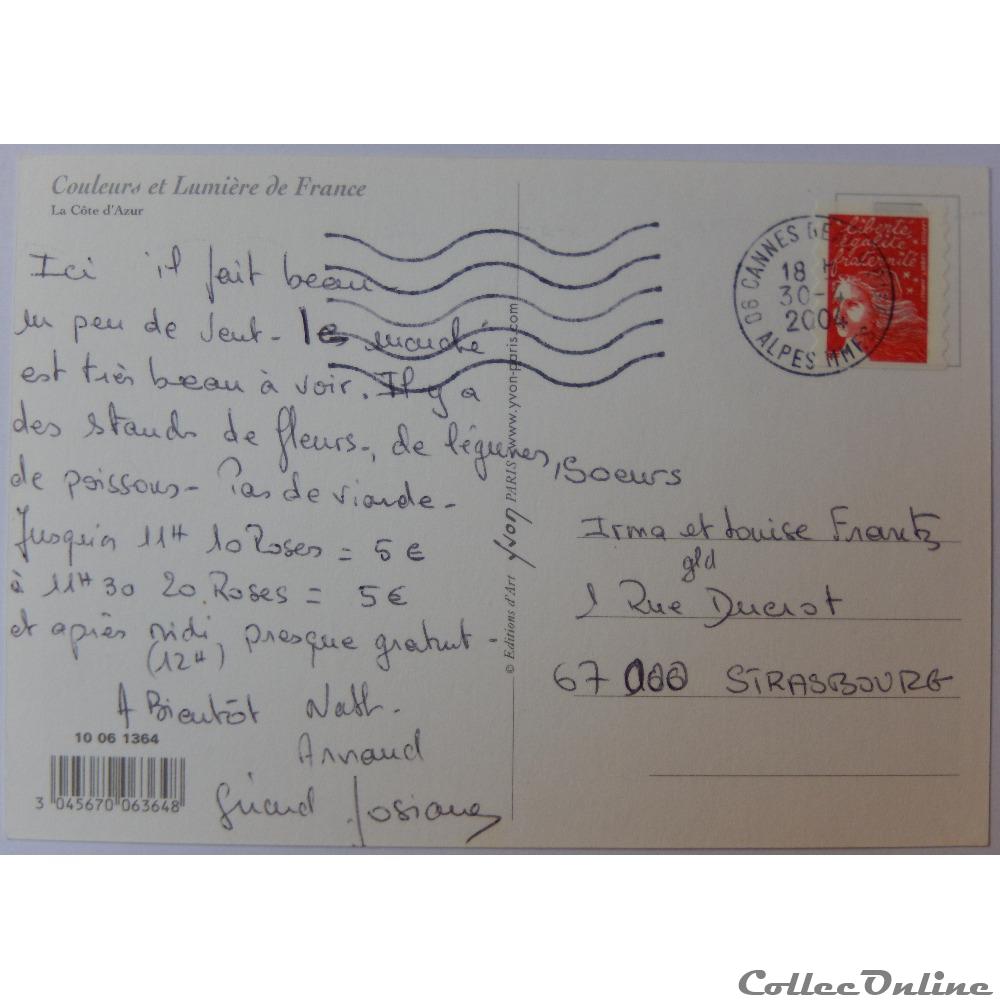 Couleurs et Lumière de France
La Côte d'Azur
Ici il fait beau
un peu de vent. les marché
est très beau à voir. Il y a
des stands de fleurs, de légumes,
de poissons - Pas de viande -
Jusqu'a 11H 10 Roses = 5 €
à 11H30 20 Roses = 5 €
et après midi, presque gratuit -
(12H)
A Bientôt Nath.
Arnaud
Gérard Josiane
10 06 1364
3 045670 063648
© Editions d'Art Yvon PARIS www.yvon-paris.com
06 CANNES
18 H
30-
2004
ALPES MMES
liberté
égalité
fraternité
Soeurs
Irma et Louise Frantz
gld
1 Rue Ducrot
67 000 STRASBOURG
CollecOnline